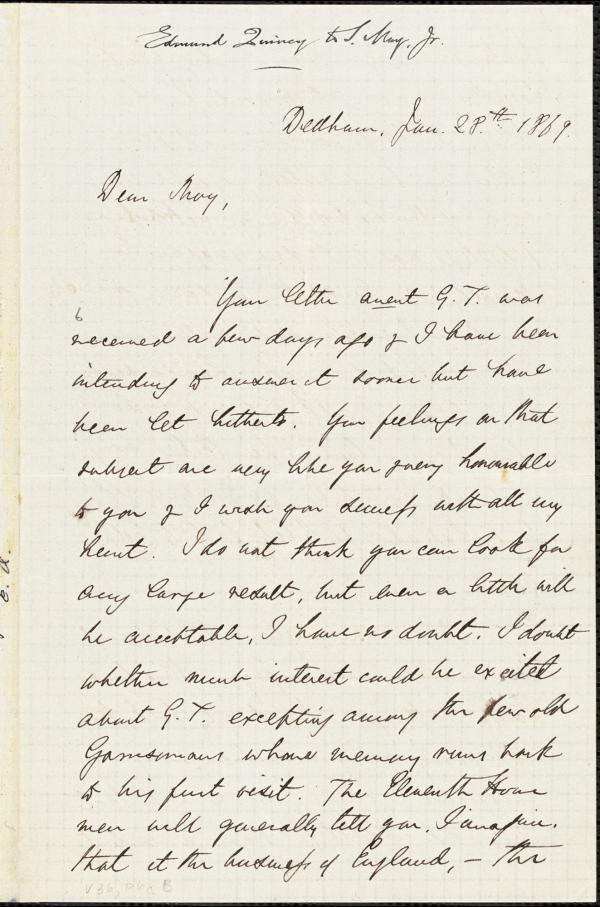 Edmund Quincy to S. May, Jr.
Dedham, Jan. 28.th 1869.
Dear May,
Your letter anent G. T. was
received a few days ago & I have been
intending to answer it sooner but have
been let hitherto. Your feelings on that
subject are very like you & very honourable
to you & I wish you success with all my
heart. I do not think you can look for
any large result, but even a little will
be acceptable, I have no doubt. I doubt
whether much interest could be excited
about G. T. excepting among the few old
Garrisonians whose memory runs back
to his first visit. The Eleventh Hour
men will generally tell you, I imagine,
that it the business of England, – the
V36, p6c B